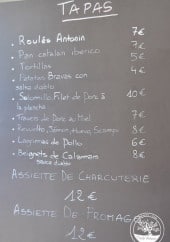 TAPAS
. Roulés Antonin 7€
. Pan catalan iberico 7€
. Tortillas 5€
. Patatas Bravas con 4€
salsa diablo
. Solomillo, Filet de Porc à 10€
la plancha
. Travers de Porc au Miel 7€
. 7€
. Lagrimas de Pollo 6€
. Beignets de Calamars 8€
sauce
ASSIETTE DE CHARCUTERIE
12€
ASSIETTE DE FROMAGE
12€